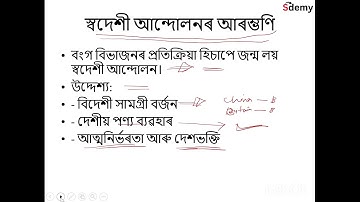 Sdemy
স্বদেশী আন্দোলনৰ আৰম্ভণি
• বংগ বিভাজনৰ প্ৰতিক্ৰিয়া হিচাপে জন্ম লয়
স্বদেশী আন্দোলন।
• উদ্দেশ্য:
• - বিদেশী সামগ্ৰী বৰ্জন
• - দেশীয় পণ্য ব্যৱহাৰ
• - আত্মনিৰ্ভৰতা আৰু দেশভক্তি
China